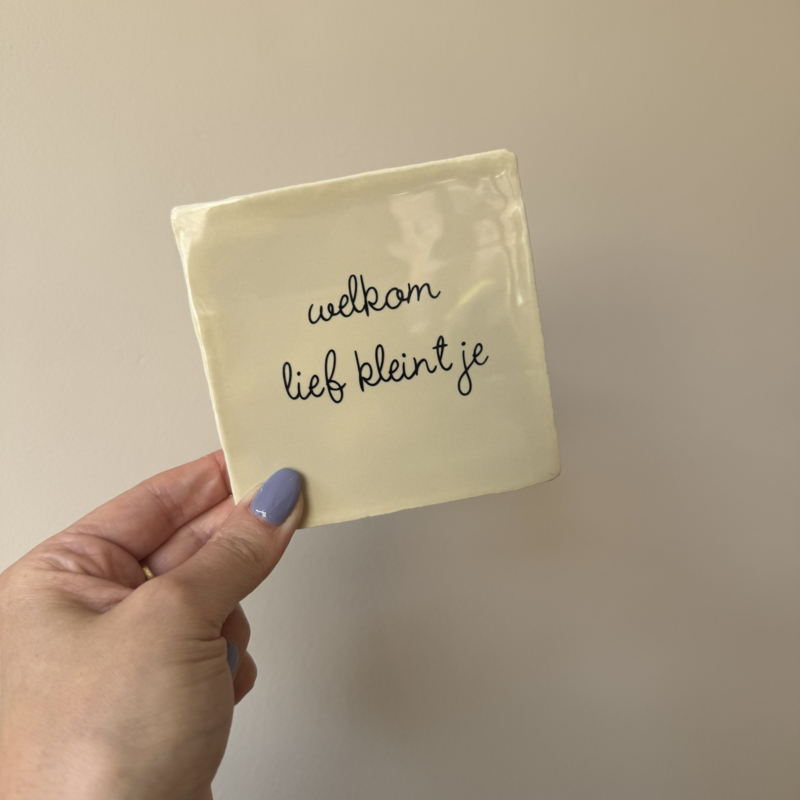 welkom
lief kleintje